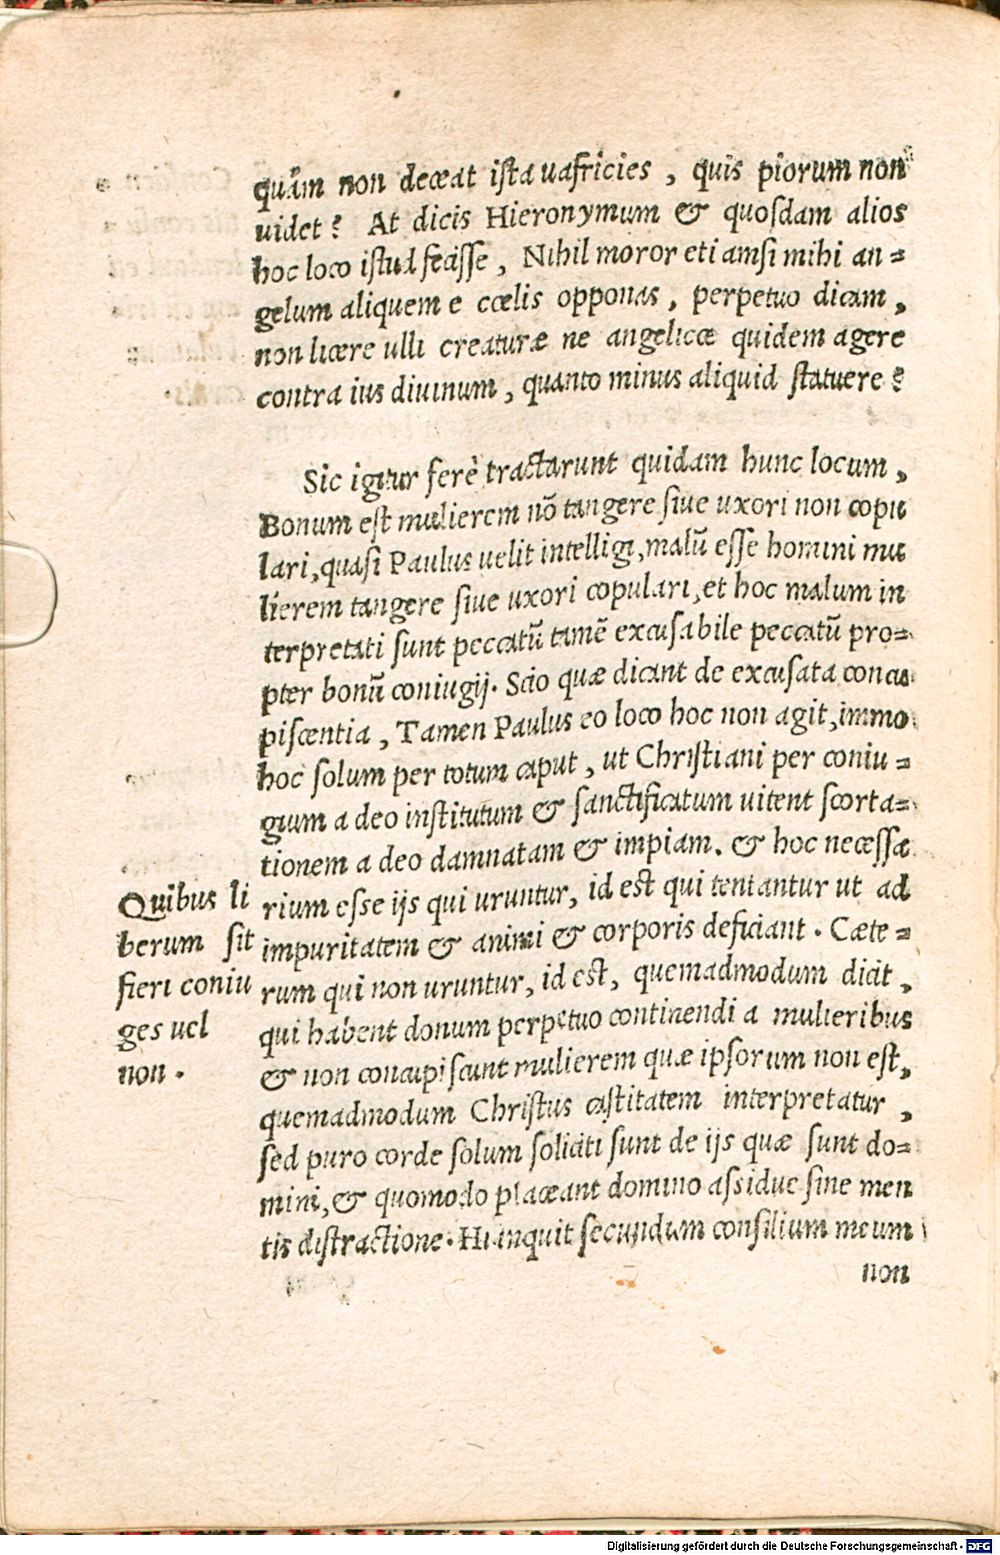 quâm non deceat ista uafricies, quis piorum non
uidet? At dicis Hieronymum & quosdam alios
hoc loco istud fecisse, Nihil moror etiamsi mihi an=
gelum aliquem e cœlis opponas, perpetuo dicam,
non licere ulli creaturæ ne angelicæ quidem agere
contra ius diuinum, quanto minus aliquid statuere?
Sic igitur ferè tractarunt quidam hunc locum,
Bonum est mulierem nõ tangere siue uxori non copu
lari, quasi Paulus uelit intelligi, malũ esse homini mu
lierem tangere siue uxori copulari, et hoc malum in
terpretati sunt peccatũ tamẽ excusabile peccatũ pro=
pter bonũ coniugij. Scio quæ dicant de excusata concu
piscentia, Tamen Paulus eo loco hoc non agit, immo
hoc solum per totum caput, ut Christiani per coniu=
gium a deo institutum & sanctificatum uitent scorta=
tionem a deo damnatam & impiam. & hoc necessa
rium esse ijs qui uruntur, id est qui tentantur ut ad
impuritatem & animi & corporis deficiant. Cæte=
rum qui non uruntur, id est, quemadmodum dicit,
qui habent donum perpetuo continendi a mulieribus
& non concupiscunt mulierem quæ ipsorum non est,
quemadmodum Christus castitatem interpretatur,
sed puro corde solum soliciti sunt de ijs quæ sunt do=
mini, & quomodo placeant domino assidue sine men
tis distractione. Hi inquit secundum consilium meum
non
Quibus li
berum sit
fieri coniu
ges uel
non.
Digitalisierung gefördert durch die Deutsche Forschungsgemeinschaft - DFG